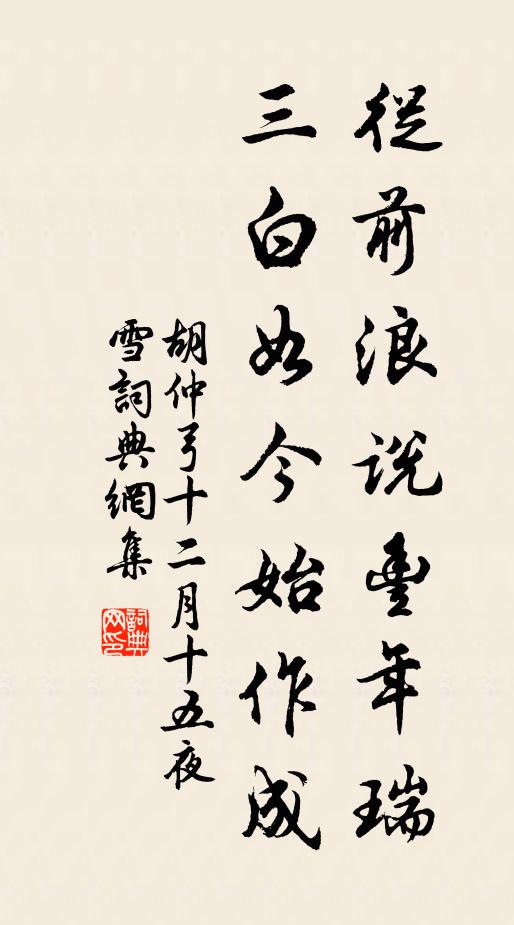 從前浪説豐年瑞
三白如今始作成
胡仲弓十二月十五夜
雪詞典網集
詞典网印